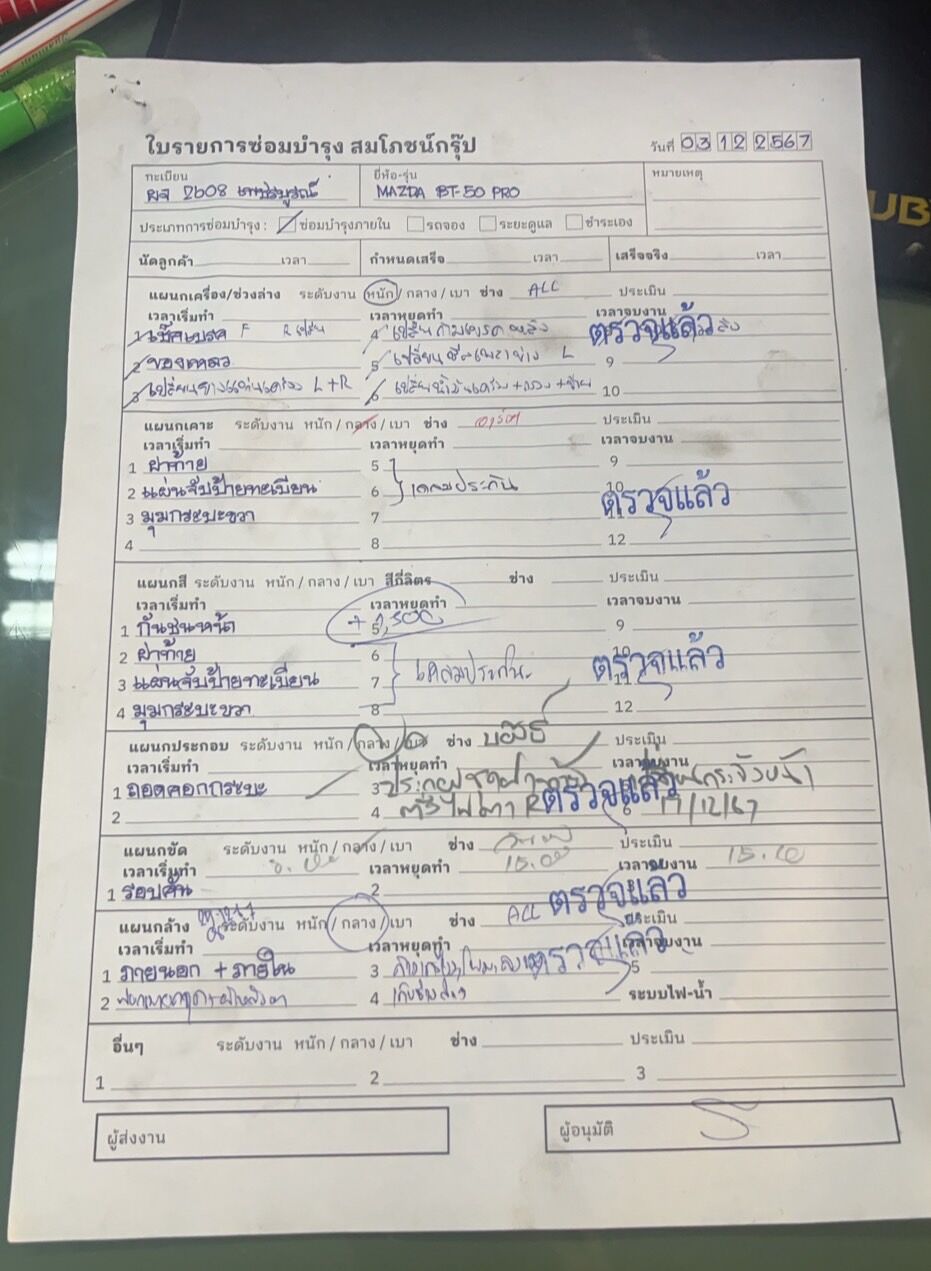 ใบรายการซ่อมบำรุง สมโภชน์กรุ๊ป
วันที่ 03 12 2567
ทะเบียน ยี่ห้อ-รุ่น หมายเหตุ
ผจ 2608 เพชรบูรณ์ MAZDA BT-50 PRO
ประเภทการซ่อมบำรุง : ซ่อมบำรุงภายใน รถจอง ระยะดูแล ชำระเอง
นัดลูกค้า เวลา กำหนดเสร็จ เวลา เสร็จจริง เวลา
แผนกเครื่อง/ช่วงล่าง ระดับงาน หนัก / กลาง / เบา ช่าง ALL ประเมิน
เวลาเริ่มทำ เวลาหยุดทำ เวลาจบงาน
1 เช็คเบรค F R 4 เปลี่ยนก้ามเบรคหลัง ตรวจแล้ว
2 ของเหลว 5 เปลี่ยน L 9
3 เปลี่ยนยางแท่นเครื่อง L+R 6 เปลี่ยนน้ำมันเครื่อง+กรอง 10
แผนกเคาะ ระดับงาน หนัก / กลาง / เบา ช่าง ประเมิน
เวลาเริ่มทำ เวลาหยุดทำ เวลาจบงาน
1 ฝาท้าย 5 9
2 แผ่นจับป้ายทะเบียน 6 เคลมประกัน 10 ตรวจแล้ว
3 มุมกระบะขวา 7 11
4 8 12
แผนกสี ระดับงาน หนัก / กลาง / เบา สีกี่ลิตร ช่าง ประเมิน
เวลาเริ่มทำ เวลาหยุดทำ เวลาจบงาน
1 กันชนหน้า 5 9
2 ฝาท้าย 6 10 ตรวจแล้ว
3 แผ่นจับป้ายทะเบียน 7 เคลมประกัน 11
4 มุมกระบะขวา 8 12
แผนกประกอบ ระดับงาน หนัก / กลาง / เบา ช่าง ประเมิน
เวลาเริ่มทำ เวลาหยุดทำ เวลาจบงาน
1 ถอดคอกกระบะ 3 ตรวจแล้ว
2 4 6 17/12/67
แผนกขัด ระดับงาน หนัก / กลาง / เบา ช่าง ประเมิน
เวลาเริ่มทำ เวลาหยุดทำ 15.00 เวลาจบงาน
1 รอบคัน 2 ตรวจแล้ว
แผนกล้าง ระดับงาน หนัก / กลาง / เบา ช่าง ALL ประเมิน
เวลาเริ่มทำ เวลาหยุดทำ เวลาจบงาน
1 ภายนอก + ภายใน 3 ตรวจแล้ว 5
2 4 เก็บช่วงล่าง ระบบไฟ-น้ำ
อื่นๆ ระดับงาน หนัก / กลาง / เบา ช่าง ประเมิน
1 2 3
ผู้ส่งงาน ผู้อนุมัติ